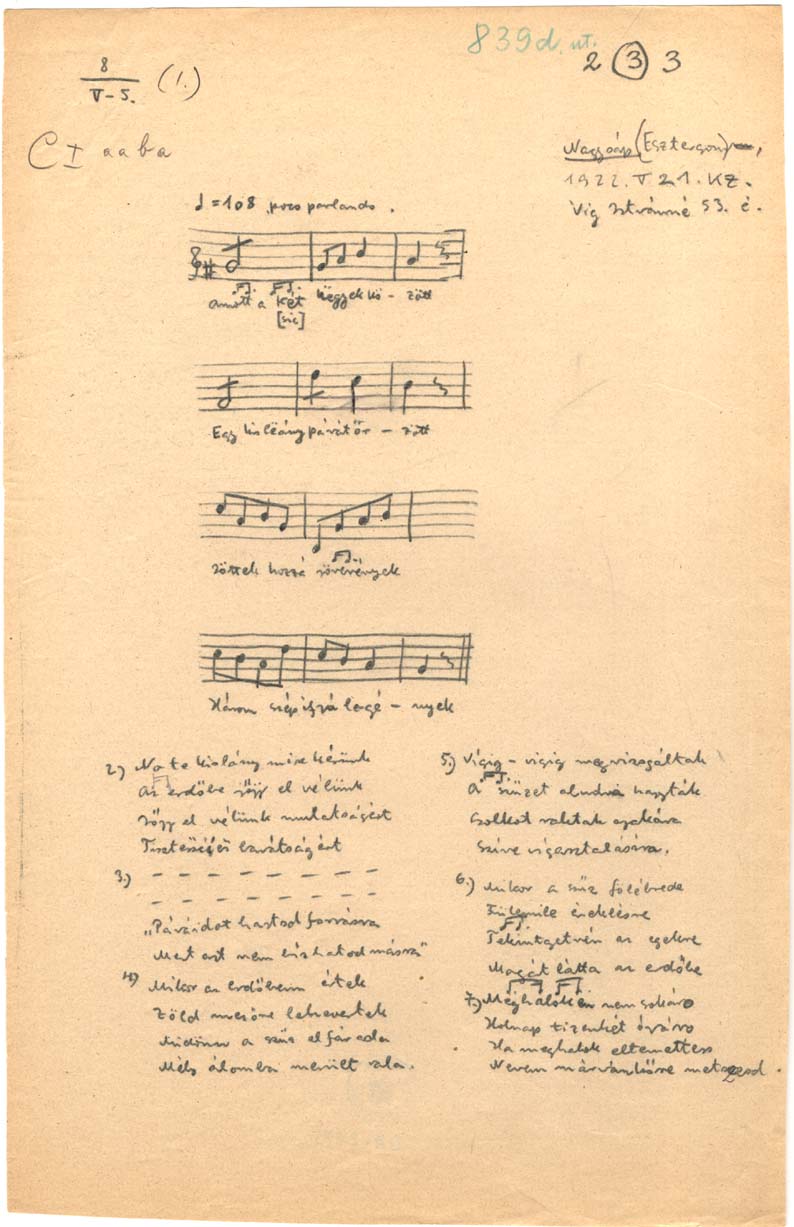 839d. ut.
8
V-5.
(1.)
2 3 3
C I a a b a
Nagysáp (Esztergom),
1922. V 21. KZ.
Vig Istvánné 53. é.
♩=108 poco parlando.
Amott a két hëgyek kö - zött
[sic]
Egy kislëány pávát őr - zött
Jöttek hozzá jövevények
Három szép ifjú legé - nyek
2) No te kislány mire kérünk
Az erdőbe jőjj el vélünk
Jőjj el vélünk mulatságért
barátságért
3.) — — — — — — —
— — — — — — —
"Páváidot hartsd forrásra
Mert azt nem bízhatod másra"
4) Mikor az erdőbenn értek
Zöld mezőre lehevertek
Midőnn a szűz elfárada
Mély álomba merült vala.
5.) Végig - végig megvizsgálták
A szüzet aludva hagyták
Csolkot raktak ajakára
Szíve vigasztalására.
6.) Mikor a szűz fölébrede
Fülemile éneklésre
Tekintgetvén az egekre
Magát látta az erdőbe
7.) Méghalok én nem sokáro
Holnap tizenkét óráro
Ha meghalok eltemettess
Nevem márvánkőre metczesd.